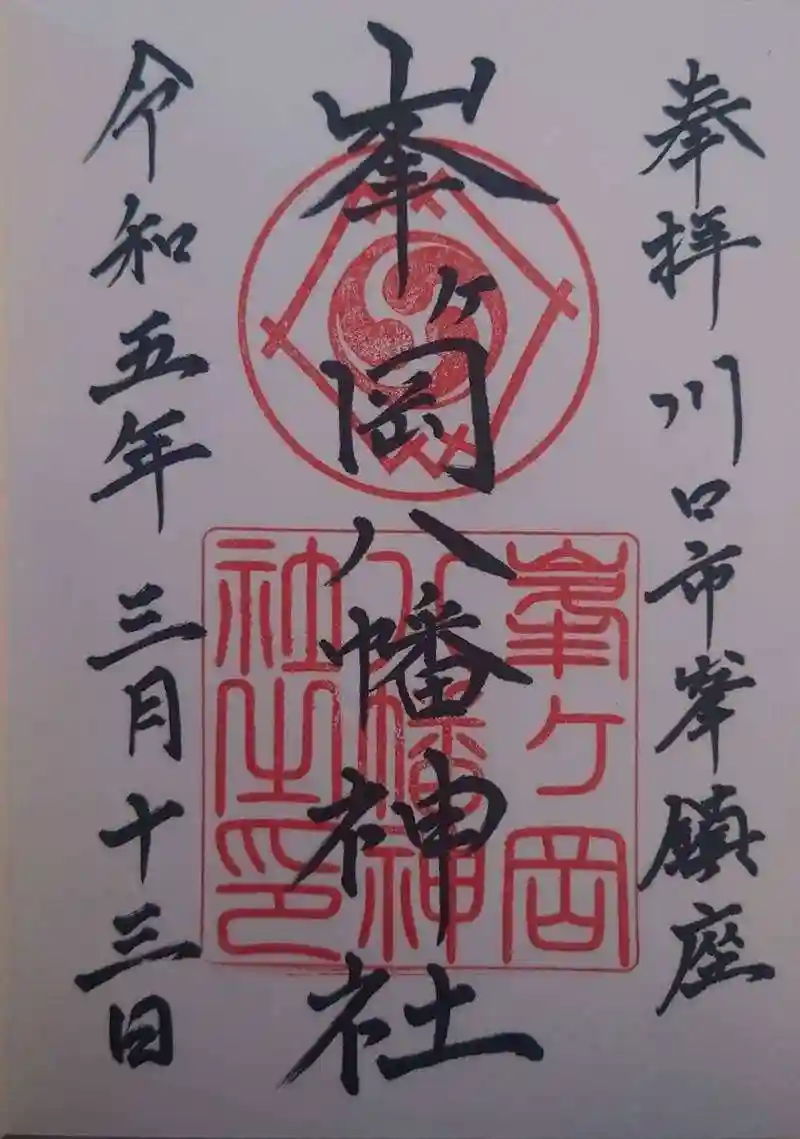 奉拝 川口市峯鎮座
峯ヶ岡八幡神社
令和五年 三月十三日
峯ヶ岡
八幡神
社之印